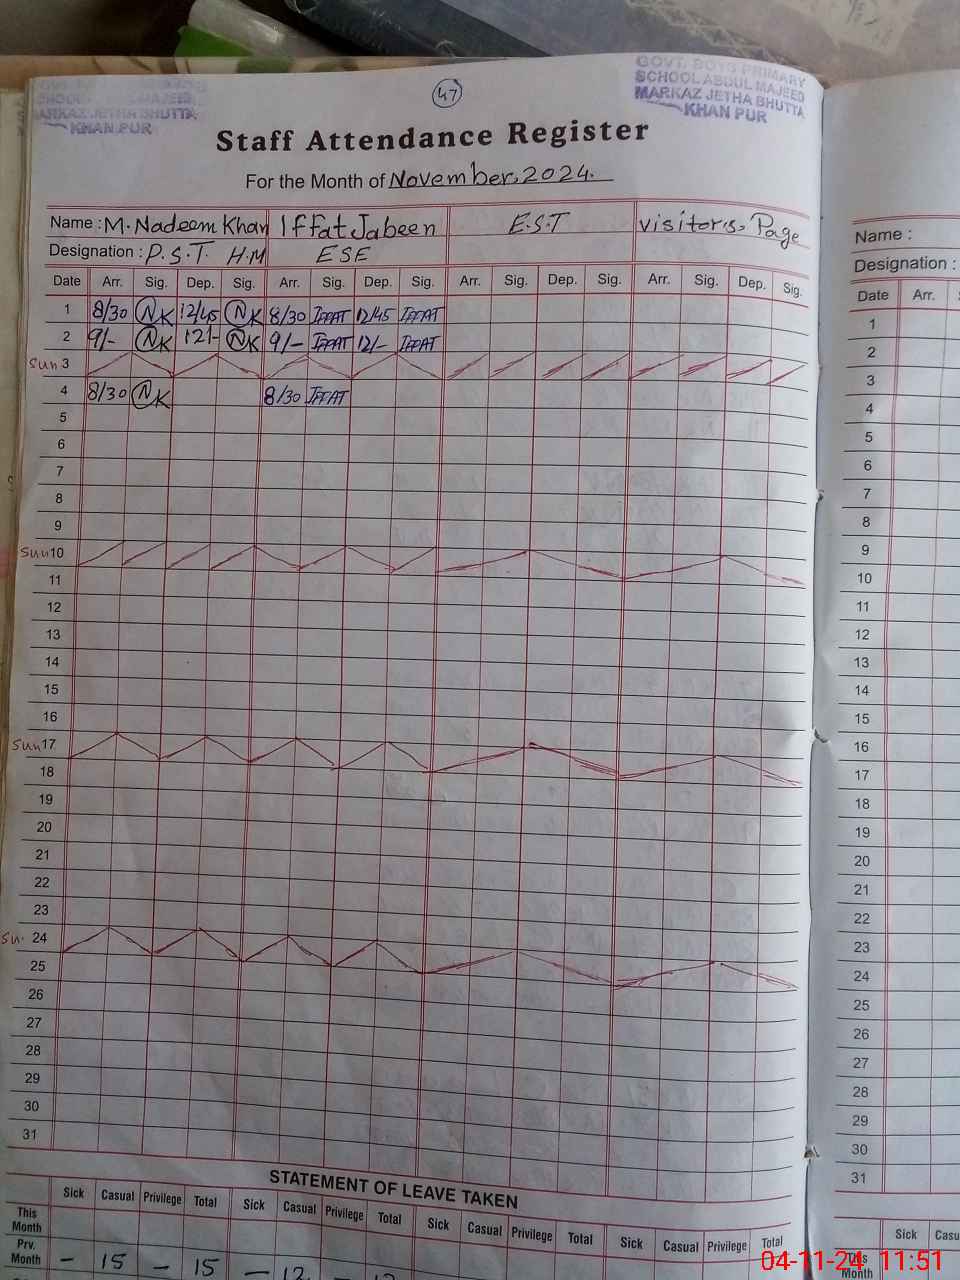 47
GOVT. BOYS PRIMARY
SCHOOL ABDUL MAJEED
MARKAZ JETHA BHUTTA
KHAN PUR
MAJEED
MARKAZ JETHA BHUTTA
KHAN PUR
Staff Attendance Register
For the Month of November, 2024.
Name : M. Nadeem Khan Iffat Jabeen E.S.T visitors, Page
Designation : P.S.T. H.M ESE
Date Arr. Sig. Dep. Sig. Arr. Sig. Dep. Sig. Arr. Sig. Dep. Sig. Arr. Sig. Dep. Sig.
1 8/30 NK 12/45 NK 8/30 IFFAT 12/45 IFFAT
2 9/- NK 12/- NK 9/- IFFAT 12/- IFFAT
Sun 3
4 8/30 NK 8/30 IFFAT
5
6
7
8
9
Sun 10
11
12
13
14
15
16
Sun 17
18
19
20
21
22
23
Su. 24
25
26
27
28
29
30
31
STATEMENT OF LEAVE TAKEN
Sick Casual Privilege Total Sick Casual Privilege Total Sick Casual Privilege Total Sick Casual Privilege Total
This Month
Prv. Month – 15 – 15 – 12 –
Name :
Designation :
Date Arr.
1
2
3
4
5
6
7
8
9
10
11
12
13
14
15
16
17
18
19
20
21
22
23
24
25
26
27
28
29
30
31
Sick
This Month
04-11-24 11:51